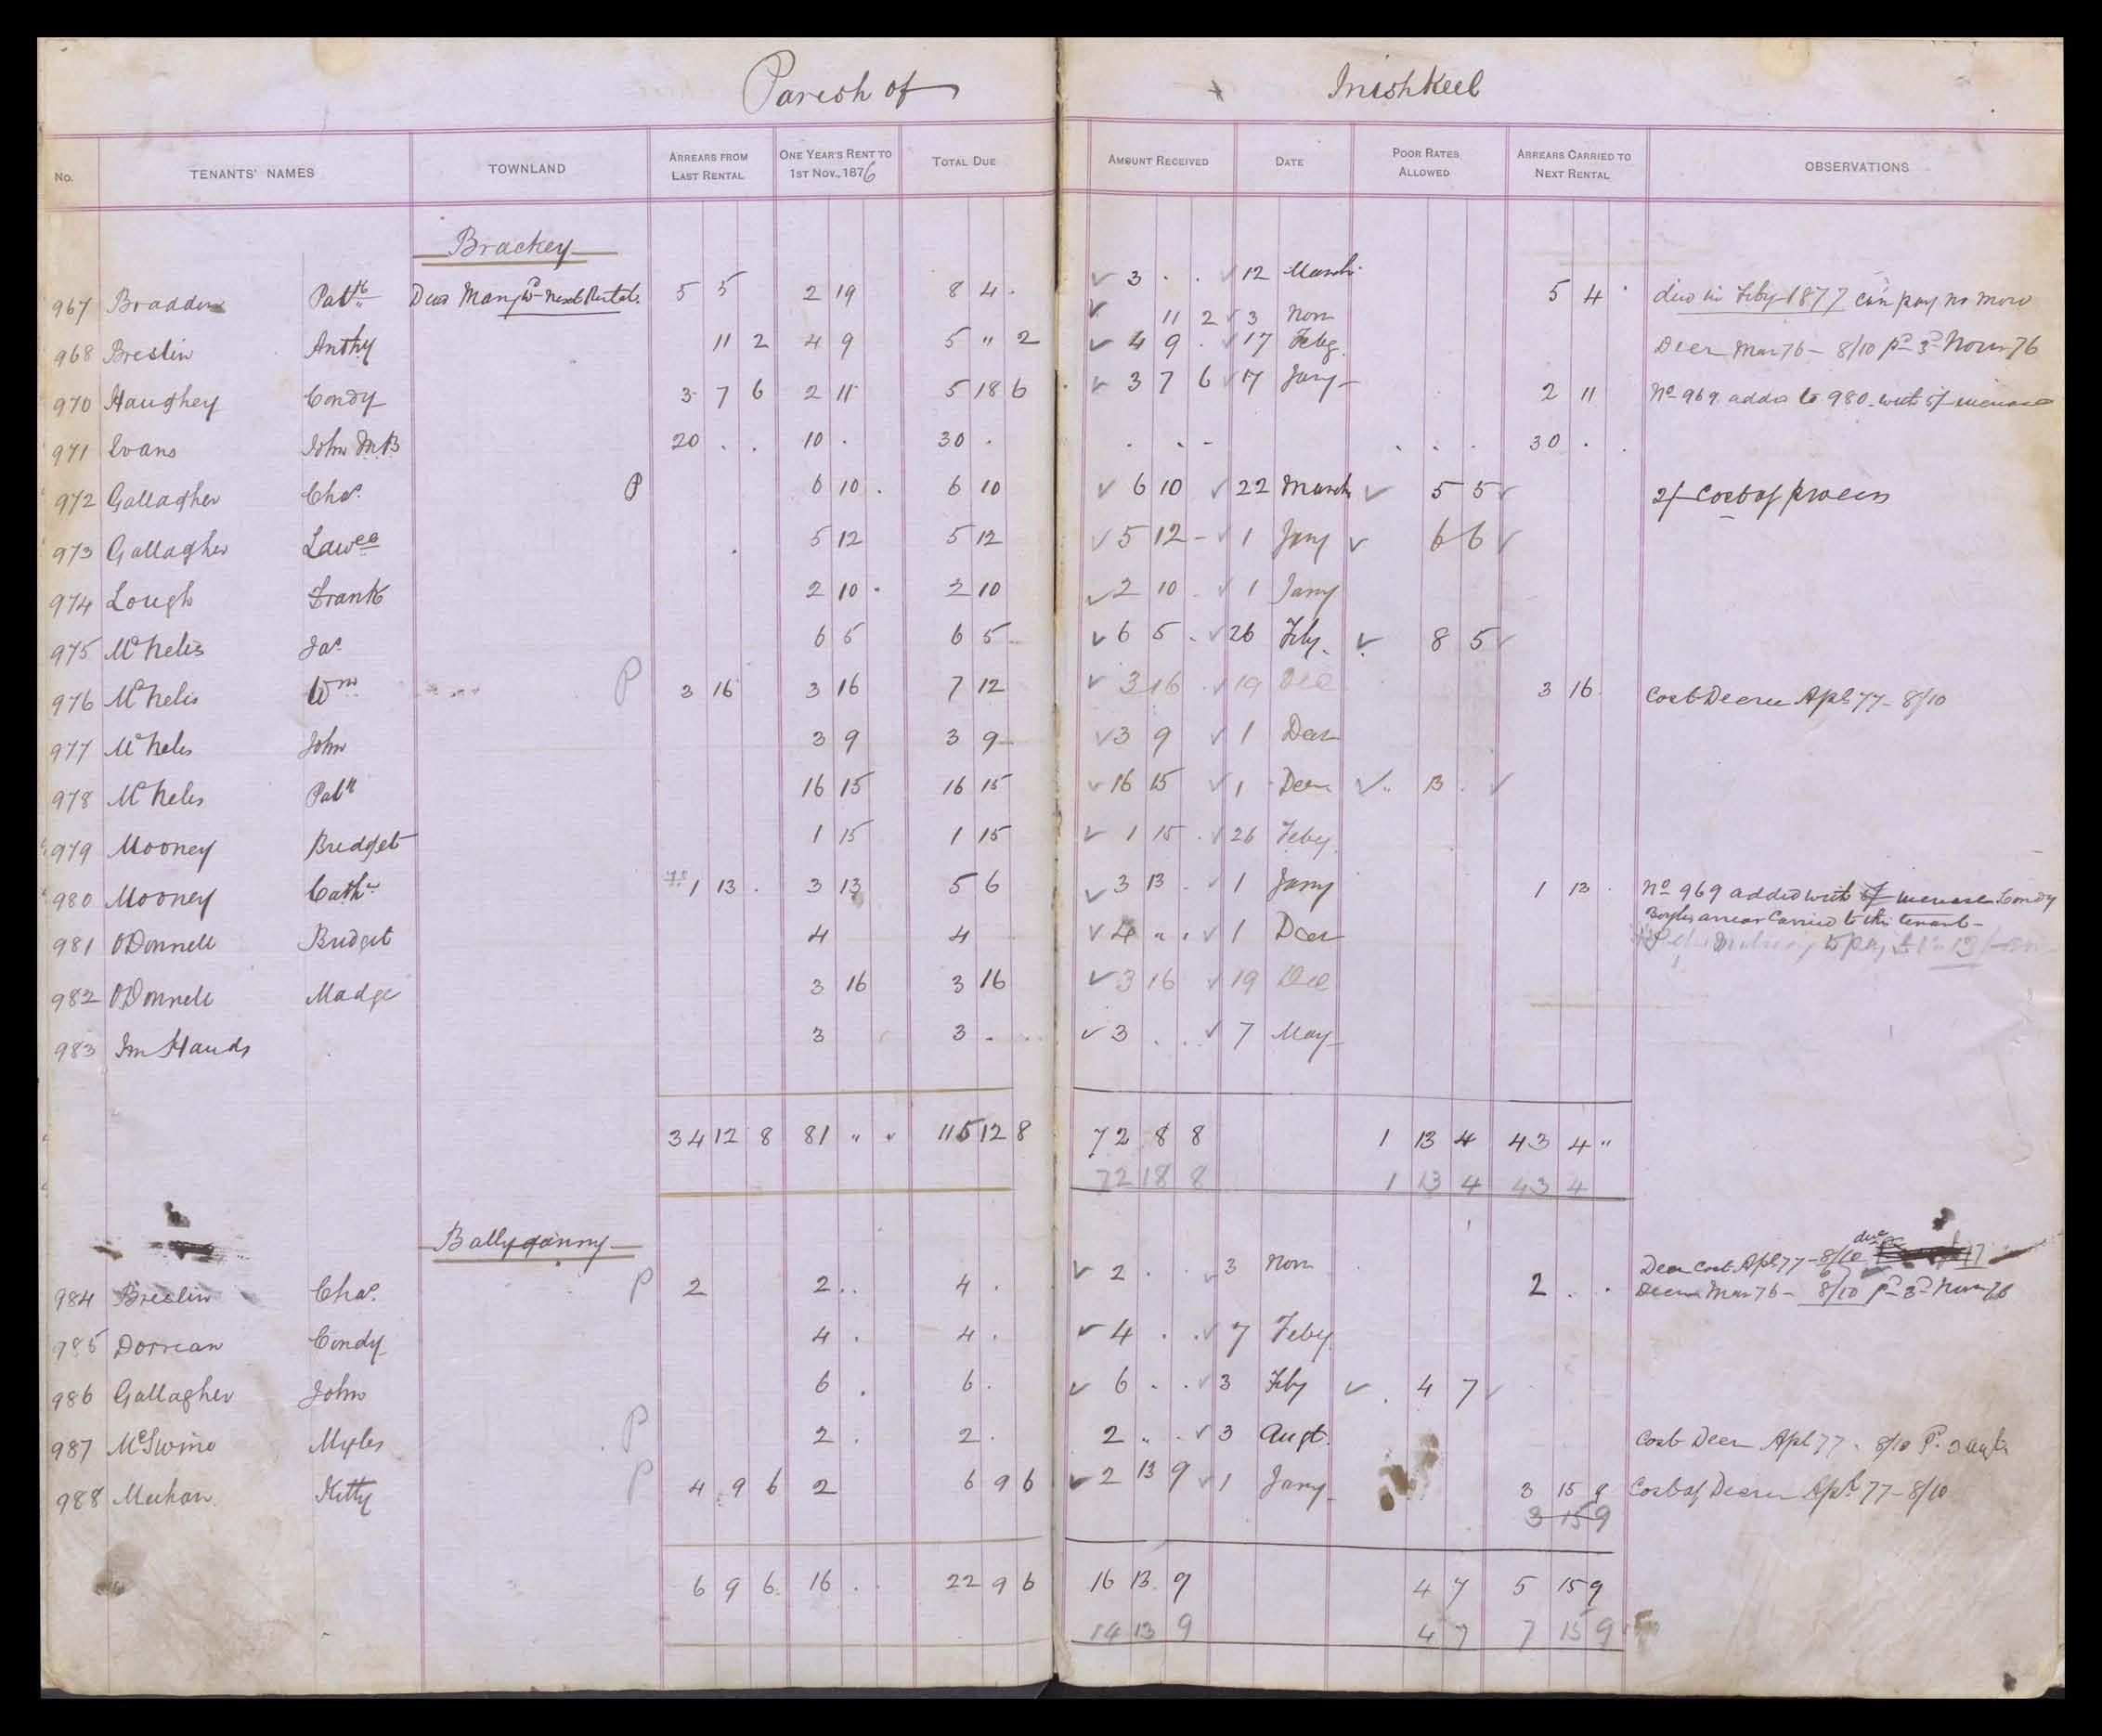 Parish of Inishkeel
No. TENANTS' NAMES TOWNLAND ARREARS FROM LAST RENTAL ONE YEAR'S RENT TO 1ST NOV., 1876 TOTAL DUE AMOUNT RECEIVED DATE POOR RATES ALLOWED ARREARS CARRIED TO NEXT RENTAL OBSERVATIONS
Brackey
967 Bradden Patk 5 5 2 19 8 4 3 . . 12 March 5 4 due in Feby 1877 can pay no more
11 2 3 Novr
968 Breslin Anthy 11 2 4 9 5 " 2 4 9 . 17 Feby Decr Mar 76 - 8/10 pd 3d Novr 76
970 Haughey Condy 3 7 6 2 11 5 18 6 3 7 6 17 Jany 2 11 No 969 added to 980 with 5/- increase
971 Evans John 20 . . 10 . 30 . . . - . . . 30 . .
972 Gallagher Chas. P 6 10 . 6 10 6 10 22 March 5 5 2/- Cost of process
973 Gallagher Lawce 5 12 5 12 5 12 - 1 Jany 6 6
974 Lough Frank 2 10 . 2 10 2 10 . 1 Jany
975 McNelis Jas. 6 5 6 5 6 5 . 26 Feby 8 5
976 McNelis Wm P 3 16 3 16 7 12 3 16 . 19 Dec 3 16 Cost Decree Apl 77 - 8/10
977 McNelis John 3 9 3 9 3 9 1 Decr
978 McNelis Patk 16 15 16 15 16 15 1 Decr 13 .
979 Mooney Bridget 1 15 1 15 1 15 . 26 Feby
980 Mooney Cathe 1 13 . 3 13 5 6 3 13 . 1 Jany 1 13 . No 969 added with 5/- increase Condy
Boyles arrear Carried to this tenant -
981 O'Donnell Bridget 4 4 4 . . 1 Decr
982 O'Donnell Madge 3 16 3 16 3 16 19 Dec
983 In Hands 3 3 . 3 . . 7 May
34 12 8 81 " " 115 12 8 72 8 8 1 13 4 43 4 "
72 18 8 1 13 4 43 4
Ballyganny
984 Breslin Chas. P 2 2 . . 4 . 2 . . 3 Novr 2 . . Decr Cost Apl 77 - 8/10 due
Decree Mar 76 - 8/10 pd 3d Novr 76
985 Dorrian Condy 4 . 4 . 4 . . 7 Feby
986 Gallagher John 6 . 6 . 6 . . 3 Feby 4 7
987 McSwine Myles P 2 . 2 . 2 " . 3 Augt. Cost Decr Apl 77 . 8/10
988 Meehan Kitty P 4 9 6 2 6 9 6 2 13 9 1 Jany 3 15 9 Cost of Decree Apl 77 - 8/10
3 15 9
6 9 6 16 . . 22 9 6 16 13 9 4 7 5 15 9
14 13 9 4 7 7 15 9